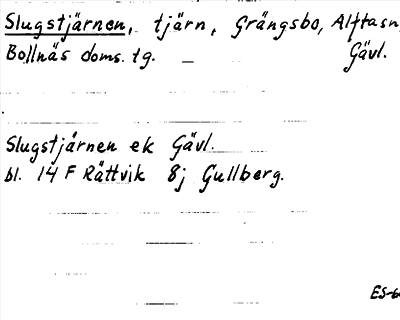 Slugstjärnen, tjärn, Grängsbo, Alftasn,
Bollnäs doms. tg. Gävl.
Slugstjärnen ek Gävl.
bl. 14 F Rättvik 8j Gullberg.